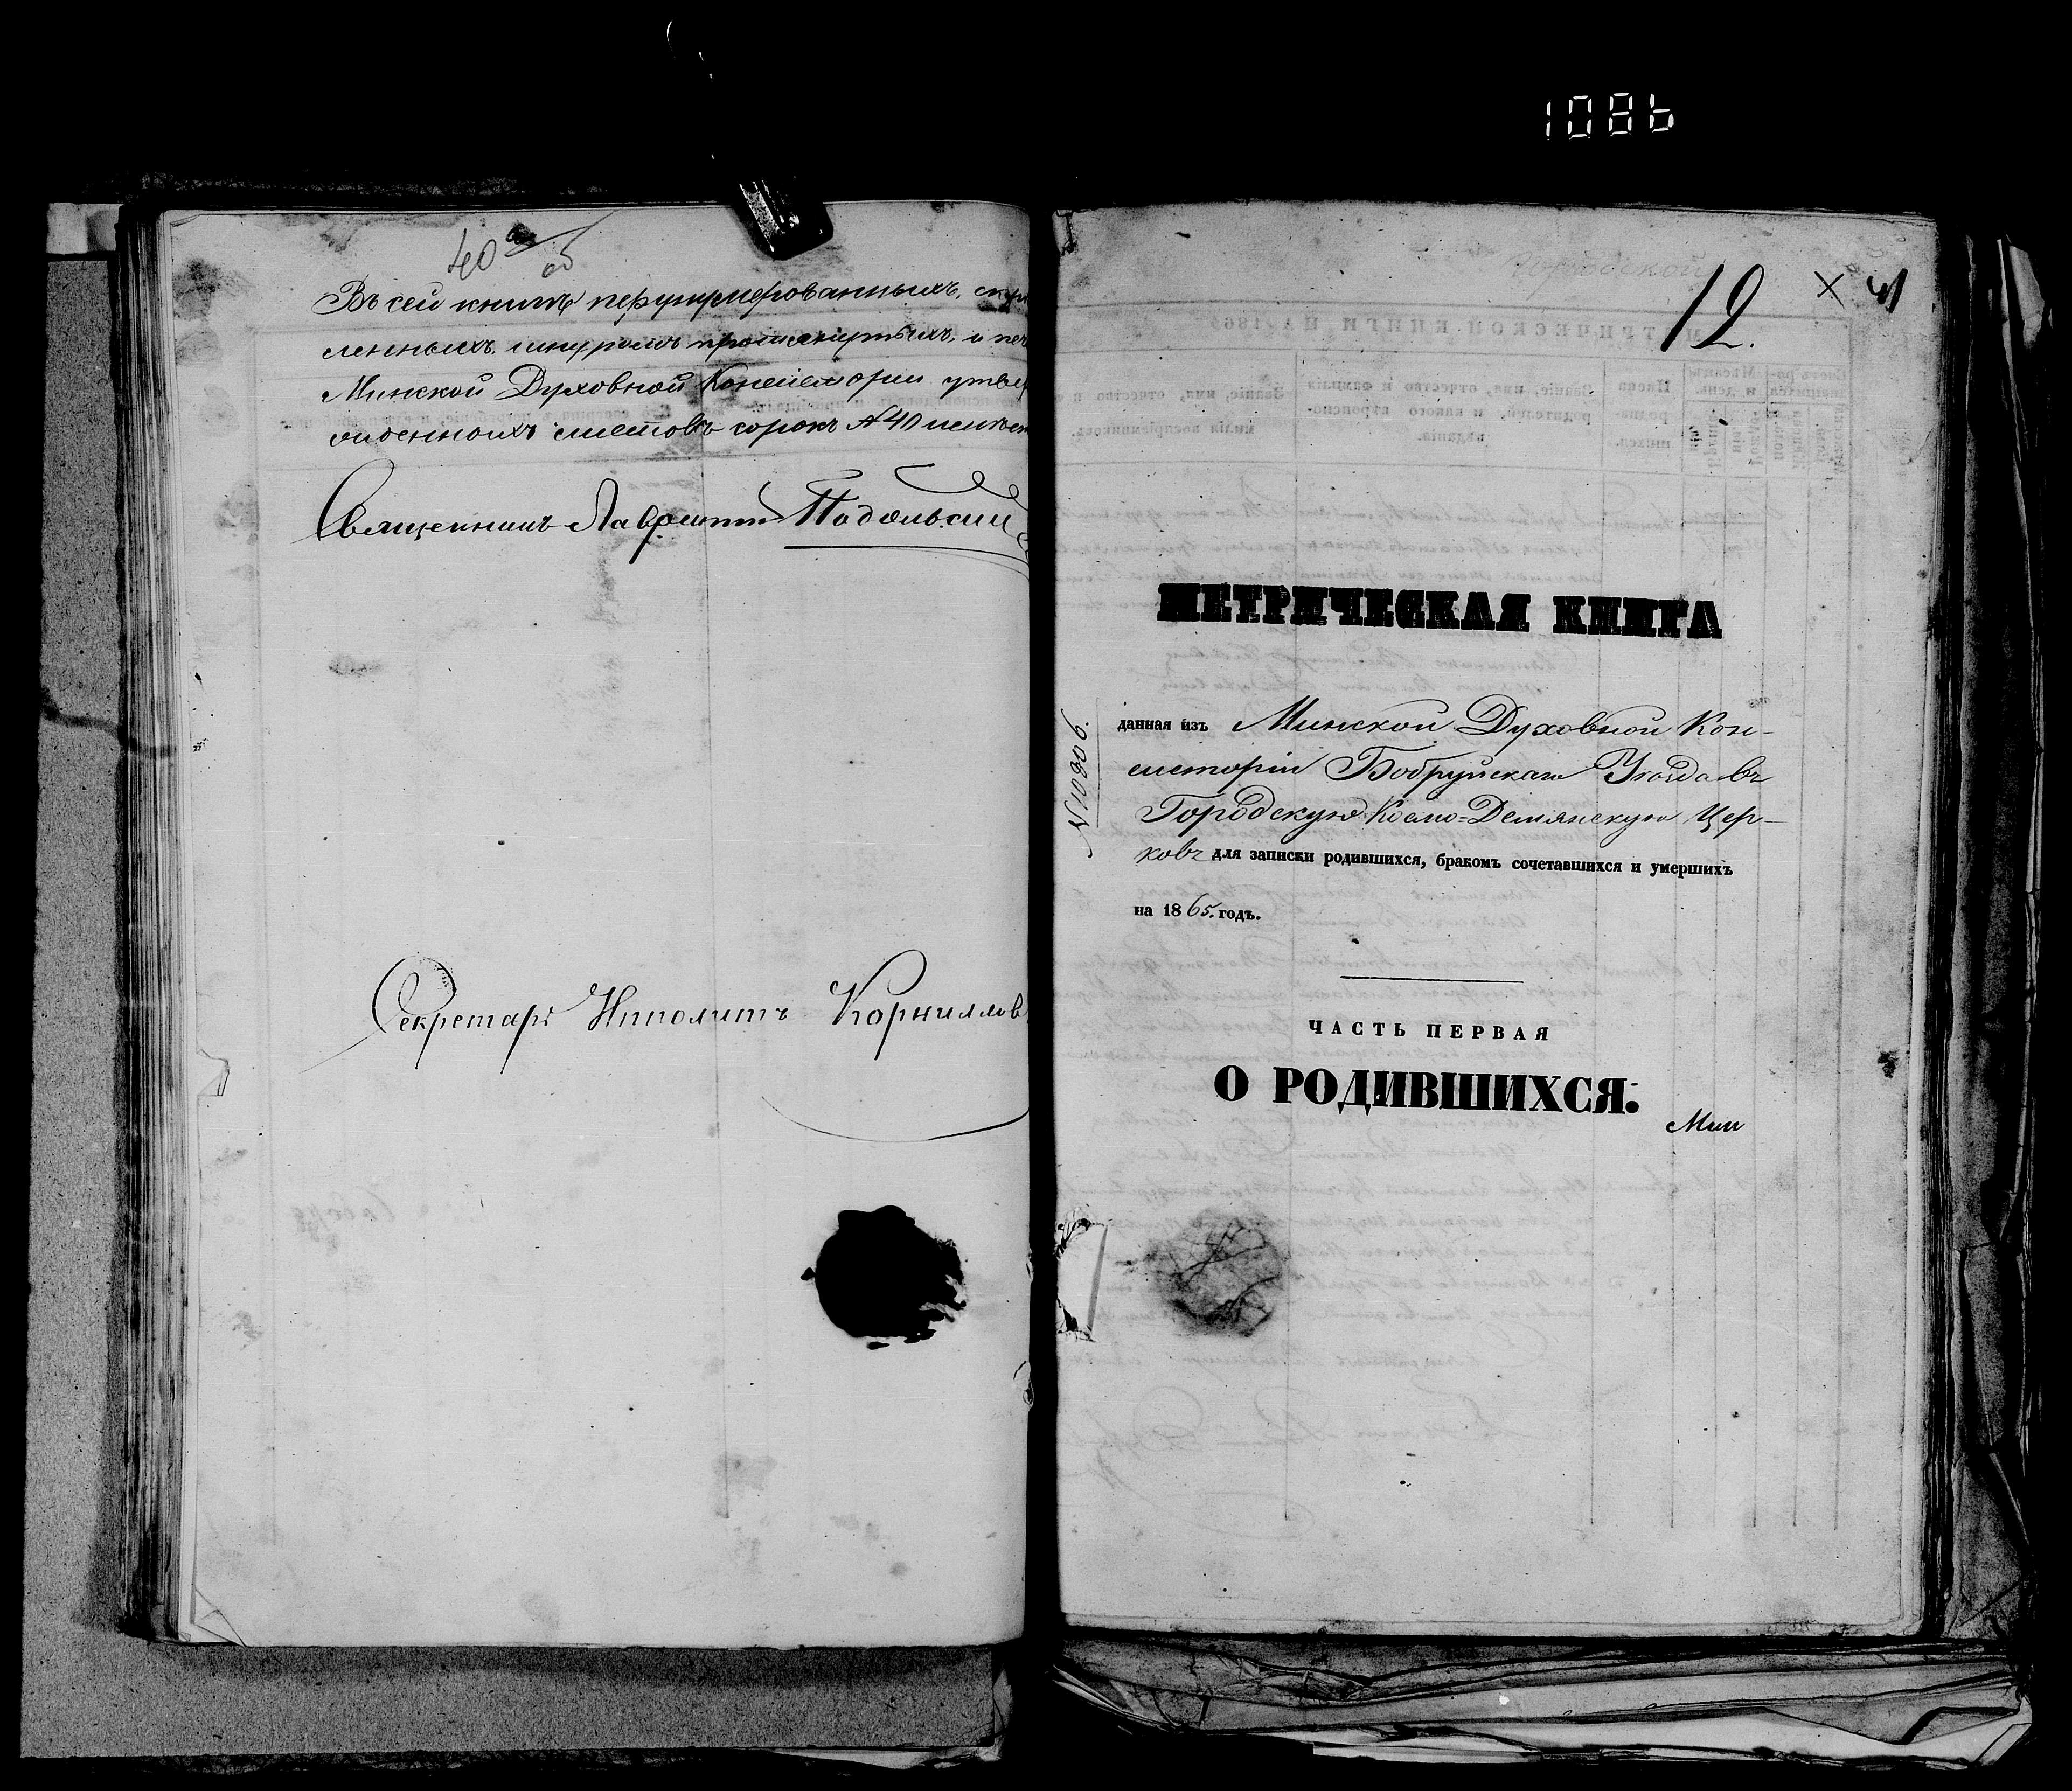 1086
40 об
Въ сей книгѣ перенумерованныхъ, скрѣ
пленныхъ, шнуромъ прошнурованныхъ, и печ
Минской Духовной Консисторіи утвер
жденныхъ листовъ сорокъ № 40 листъ
Священникъ Лаврентій Подольскій
Секретарь Ипполитъ Корниллов
12. X 41
МЕТРИЧЕСКАЯ КНИГА
№ 10806.
данная изъ Минской Духовной Кон-
систоріи Бобруйскаго Уѣзда въ
Городскую Космо-Демянскую Цер-
ковь для записки родившихся, бракомъ сочетавшихся и умершихъ
на 1865. годъ.
ЧАСТЬ ПЕРВАЯ
О РОДИВШИХСЯ.
Мин